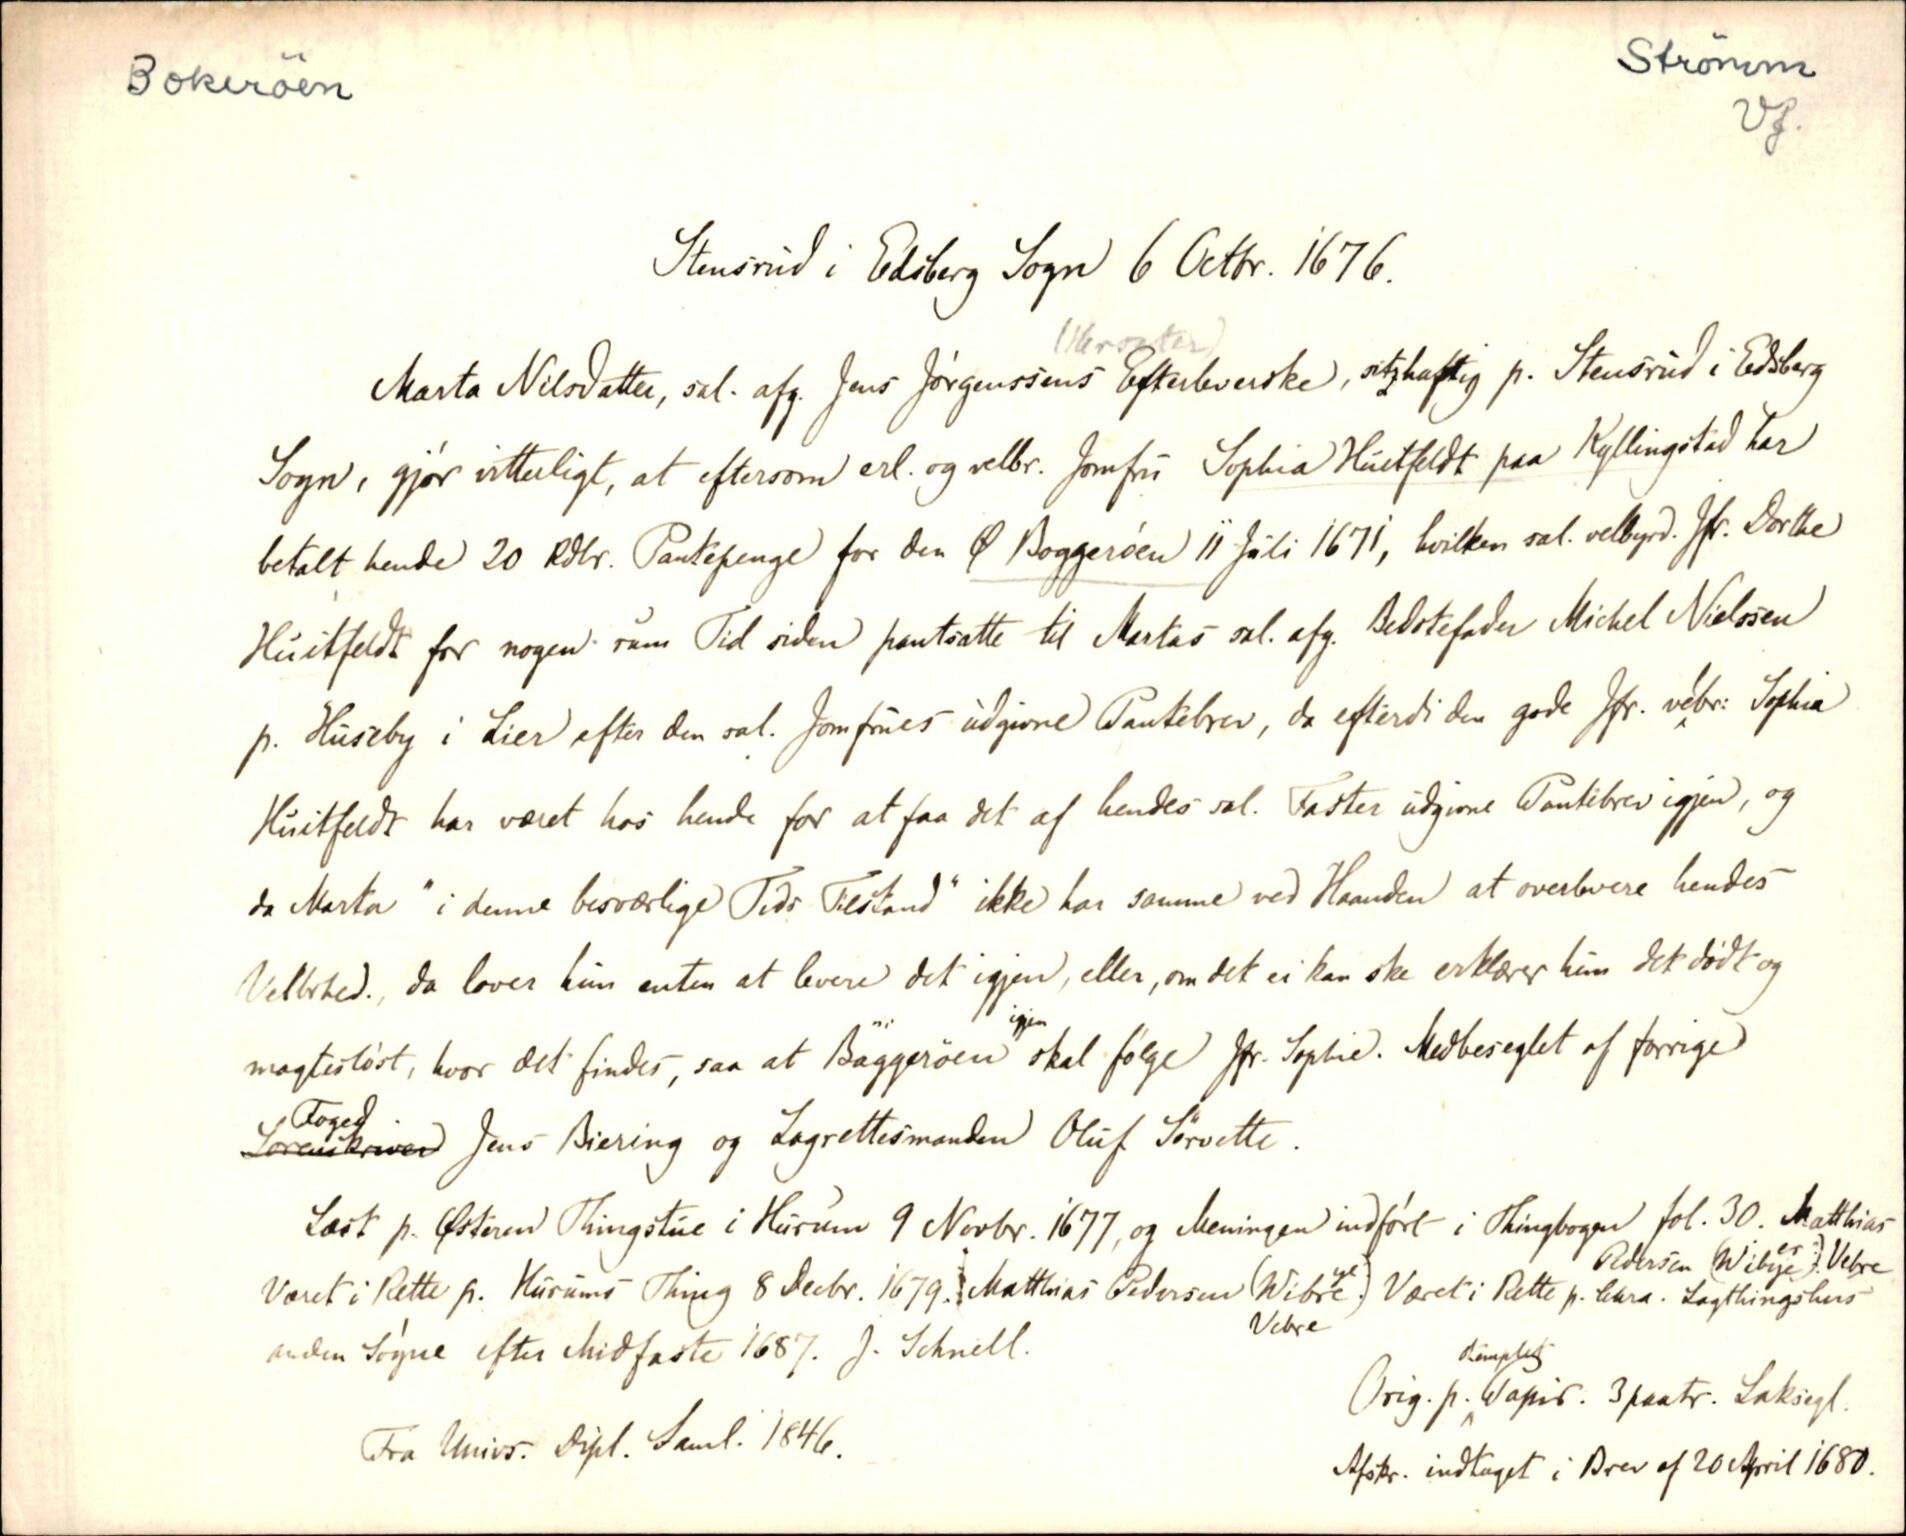 Bokeröen
Strömm
Vf.
Stensrud i Edsberg Sogn 6 Octbr. 1676.
Marta Nilsdatter, sal. afg. Jens Jørgenssens Efterleverske, sitzhaftig p. Stensrud i Edsberg
Sogn, gjør vitterligt, at eftersom erl. og velbr. Jomfru Sophia Huitfeldt paa Kyllingstad har
betalt hende 20 Rdlr. Pantepenge for den Ø Boggerøen 11 Juli 1671, hvilken sal. velbyrd. Jfr. Dorthe
Huitfeldt for nogen rum Tid siden pantsatte til Martas sal. afg. Bedstefader Michel Nielssen
p. Huseby i Lier efter den sal. Jomfrues udgivne Pantebrev, da efterdi den gode Jfr. velbr: Sophia
Huitfeldt har været hos hende for at faa det af hendes sal. Faster udgivne Pantebrev igjen, og
da Marta "i denne besværlige Tids Tilstand" ikke har samme ved Haanden at overlevere hendes
Velbrhed., da lover hun enten at levere det igjen, eller, om det ei kan ske erklærer hun det dødt og
magtesløst, hvor det findes, saa at Båggeröen igjen skal følge Jfr. Sophie. Medbeseglet af forrige
Sorenskriver Foged Jens Biering og Lagrettesmanden Oluf Sörvette.
Læst p. Østeren Thingstue i Hurum 9 Novbr. 1677, og Meningen indført i Thingbogen fol. 30. Matthias
Pedersen (Wibye) Vebre
Været i Rette p. Hurums Thing 8 Decbr. 1679. Matthias Pedersen (Wibye) Været i Rette p. Lagthingshus
Vebre
anden Søgne efter Midfaste 1687. J. Schnell.
Orig. p. stemplet Papir. 3 paatr. Laksegl.
Fra Univs. Dipl. Saml. 1846.
Afskr. indtaget i Brev af 20 April 1680.